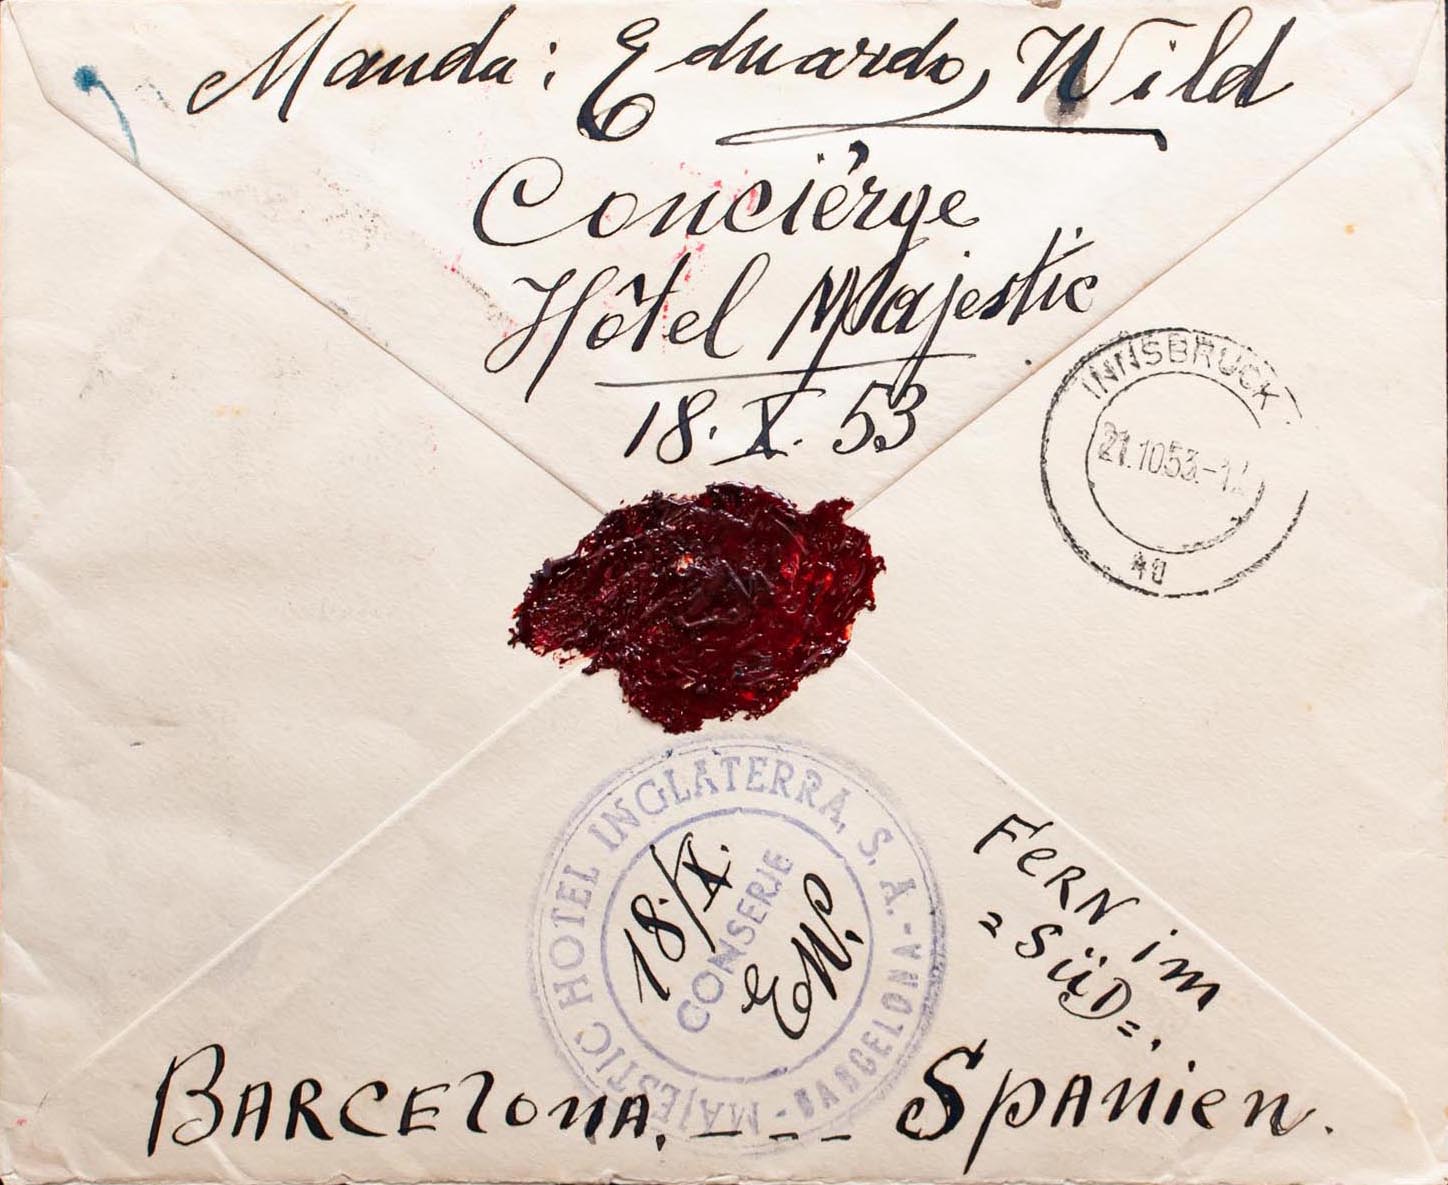 Manda: Eduardo, Wild
Conciérge
Hôtel Majestic
18. X. 53
INNSBRUCK
21.10.53.-1
MAJESTIC HOTEL INGLATERRA, S. A. - BARCELONA -
18/X.
CONSERJE
EW.
FERN im
=SÜD=.
BARCElonA. - - - SpAnien.